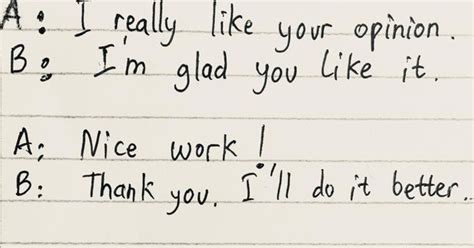 A: I really like your opinion.
B: I'm glad you like it.
A: Nice work!
B: Thank you. I'll do it better..